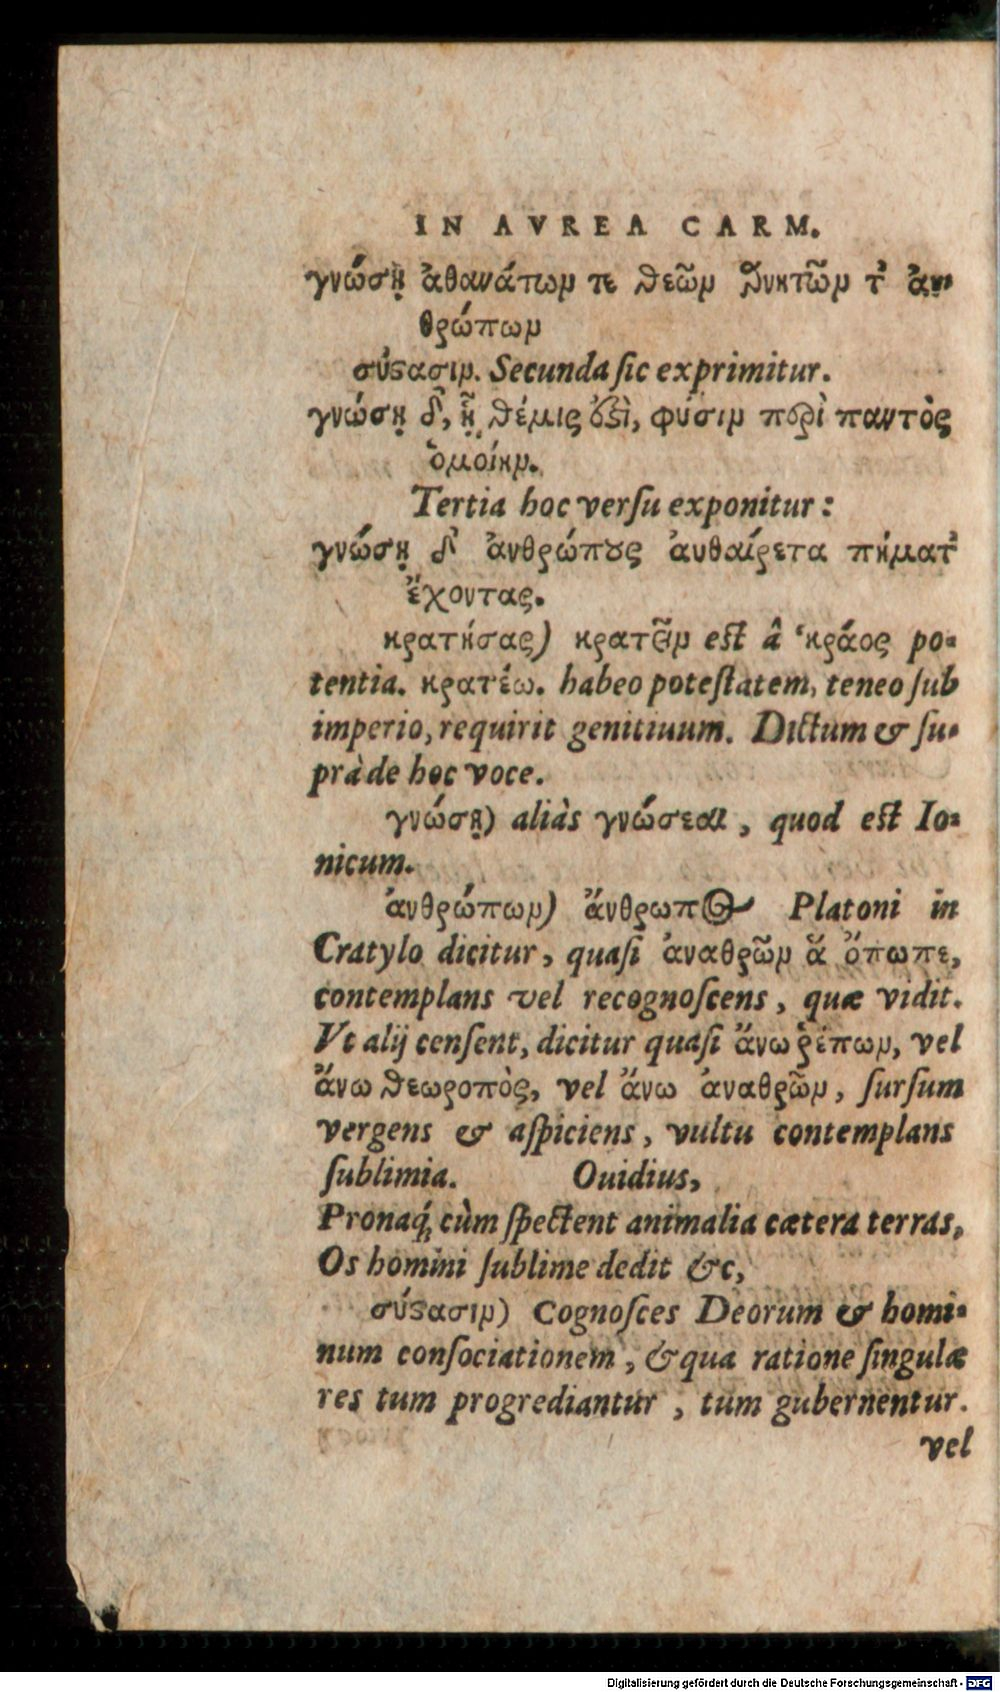 IN AVREA CARM.
γνώσῃ ἀθανάτων τε θεῶν θνητῶν τ' ἀν-
θρώπων
σύϛασιν. Secunda ſic exprimitur.
γνώσῃ δ', ᾗ θέμις ἐϛὶ, φύσιν περὶ παντὸς
ὁμοίην.
Tertia hoc verſu exponitur:
γνώσῃ δ' ἀνθρώπους ἀυθαίρετα πήματ'
ἔχοντας.
κρατήσας) κρατεῖν est â κράος po-
tentia. κρατέω. habeo poteſtatem, teneo ſub
imperio, requirit genitiuum. Dictum & ſu-
prà de hoc voce.
γνώσῃ) aliàs γνώσεαι, quod est Io-
nicum.
ἀνθρώπων) ἄνθρωπος Platoni in
Cratylo dicitur, quaſi ἀναθρῶν ἅ ὄπωπε,
contemplans vel recognoſcens, quæ vidit.
Vt alij cenſent, dicitur quaſi ἄνω ῥέπων, vel
ἄνω θεωροπὸς, vel ἄνω ἀναθρῶν, ſurſum
vergens & aſpiciens, vultu contemplans
ſublimia. Ouidius,
Pronaq́; cùm ſpectent animalia cætera terras,
Os homini ſublime dedit &c,
σύϛασιν) Cognoſces Deorum & homi-
num conſociationem, & qua ratione ſingulæ
res tum progrediantur, tum gubernentur.
vel
Digitalisierung gefördert durch die Deutsche Forschungsgemeinschaft - DFG